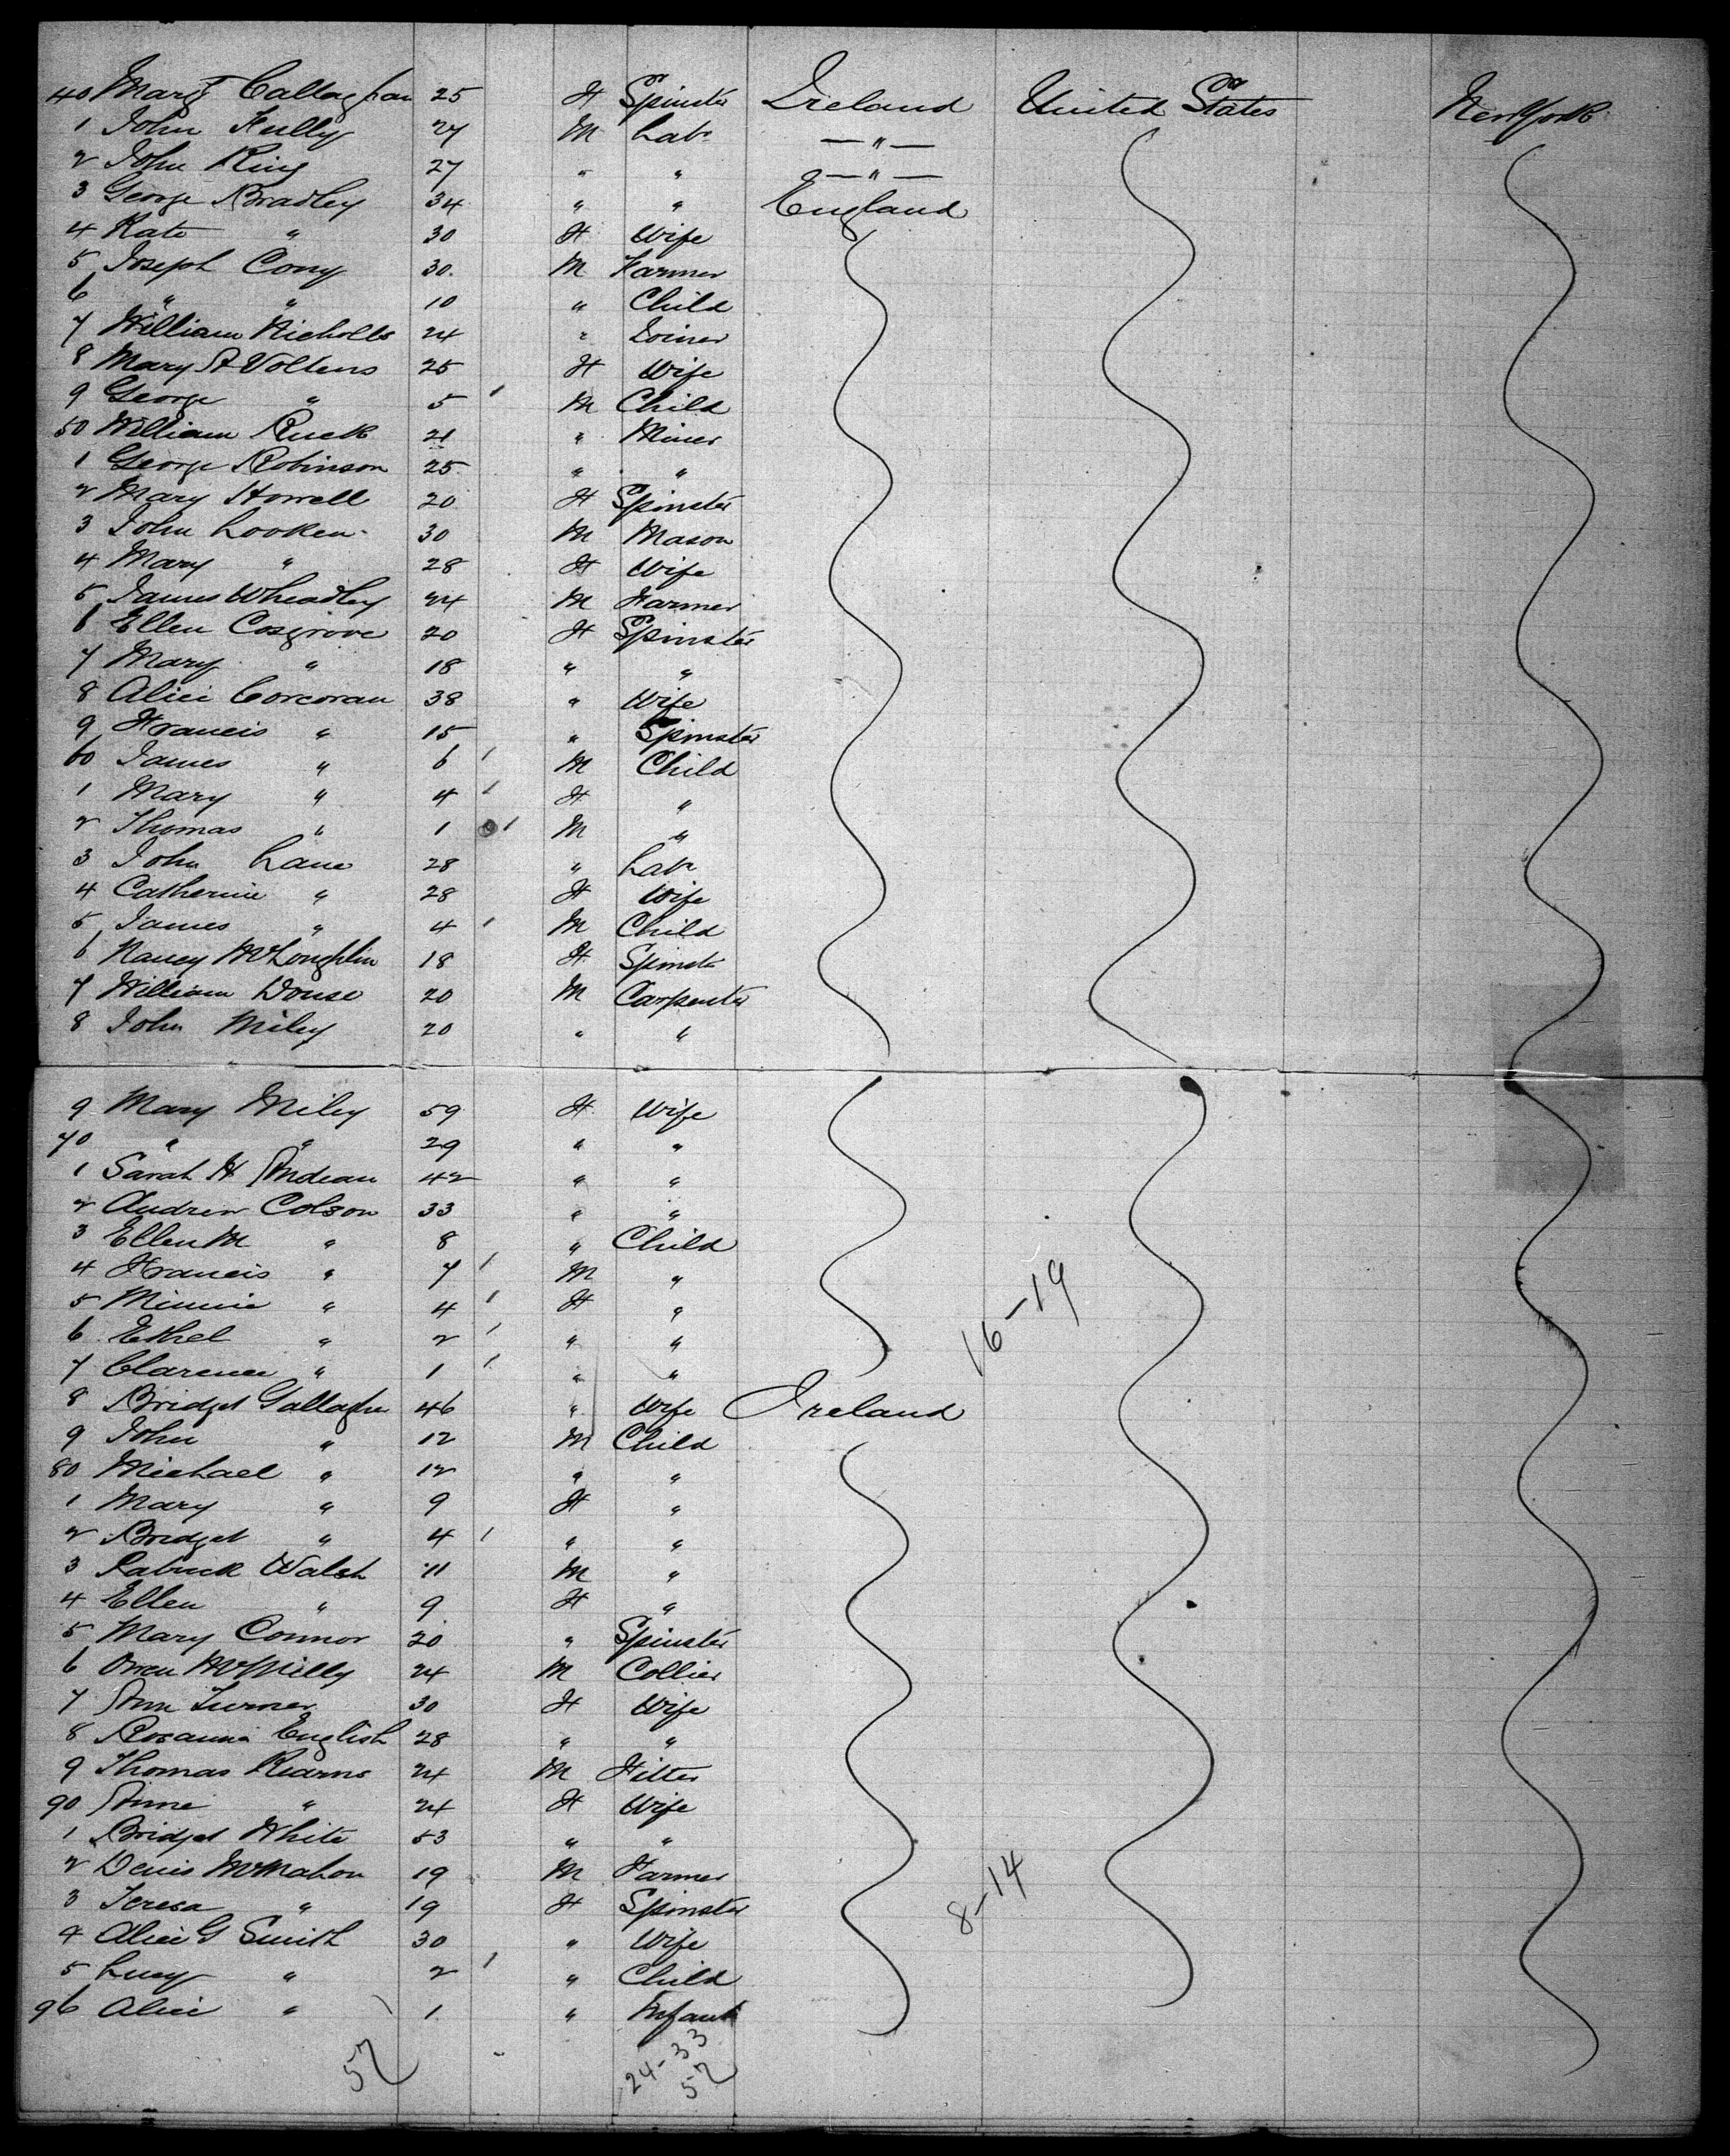 40 Margt Callaghan 25 F Spinster Ireland United States New York
1 John Kelly 27 M Labr — " —
2 John King 27 " " — " —
3 George Bradley 34 " " England
4 Kate " 30 F Wife
5 Joseph Cony 30 M Farmer
6 " " 10 " Child
7 William Nicholls 24 " Joiner
8 Mary A Voltens 25 F Wife
9 George " 5 1 M Child
50 William Ruck 21 " Miner
1 George Robinson 25 " "
2 Mary Howell 20 F Spinster
3 John Looken 30 M Mason
4 Mary " 28 F Wife
5 James Wheadley 24 M Farmer
6 Ellen Cosgrove 20 F Spinster
7 Mary " 18 " "
8 Alice Corcoran 38 " Wife
9 Francis " 15 " Spinster
60 James " 6 1 M Child
1 Mary " 4 1 F "
2 Thomas " 1 1 M "
3 John Lane 28 " Labr
4 Catherine " 28 F Wife
5 James " 4 1 M Child
6 Nancy McLoughlin 18 F Spinstr
7 William Douse 20 M Carpenter
8 John Miley 20 " "
9 Mary Miley 59 F Wife
70 " " 29 " "
1 Sarah H Andean 42 " "
2 Andrew Colson 33 " "
3 Ellen M " 8 " Child
4 Francis " 7 1 M "
5 Minnie " 4 1 F "
16-19
6 Ethel " 2 1 " "
7 Clarence " 1 1 " "
8 Bridget Gallagher 46 " Wife Ireland
9 John " 12 M Child
80 Michael " 12 " "
1 Mary " 9 F "
2 Bridget " 4 1 " "
3 Patrick Walsh 11 M "
4 Ellen " 9 F "
5 Mary Connor 20 " Spinster
6 Owen McNilly 24 M Collier
7 Ann Turner 30 F Wife
8 Rosanna English 28 " "
9 Thomas Kearns 24 M Fitter
90 Anne " 24 F Wife
1 Bridget White 53 " "
2 Denis McMahon 19 M Farmer
8-14
3 Teresa " 19 F Spinster
4 Alice G Smith 30 " Wife
5 Lucy " 2 1 " Child
96 Alice " 1 " Infant
57
24-33
57